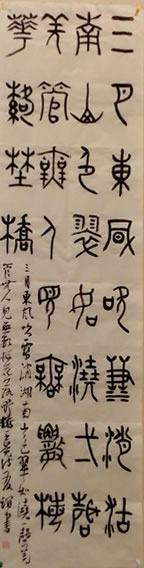 三月東風吹雪消湖
南山色翠如澆一聲
羌管無人見無數梅
花落野橋
三月東風吹雪消湖南山色翠如澆一聲羌
管無人見無數梅花落野橋 書